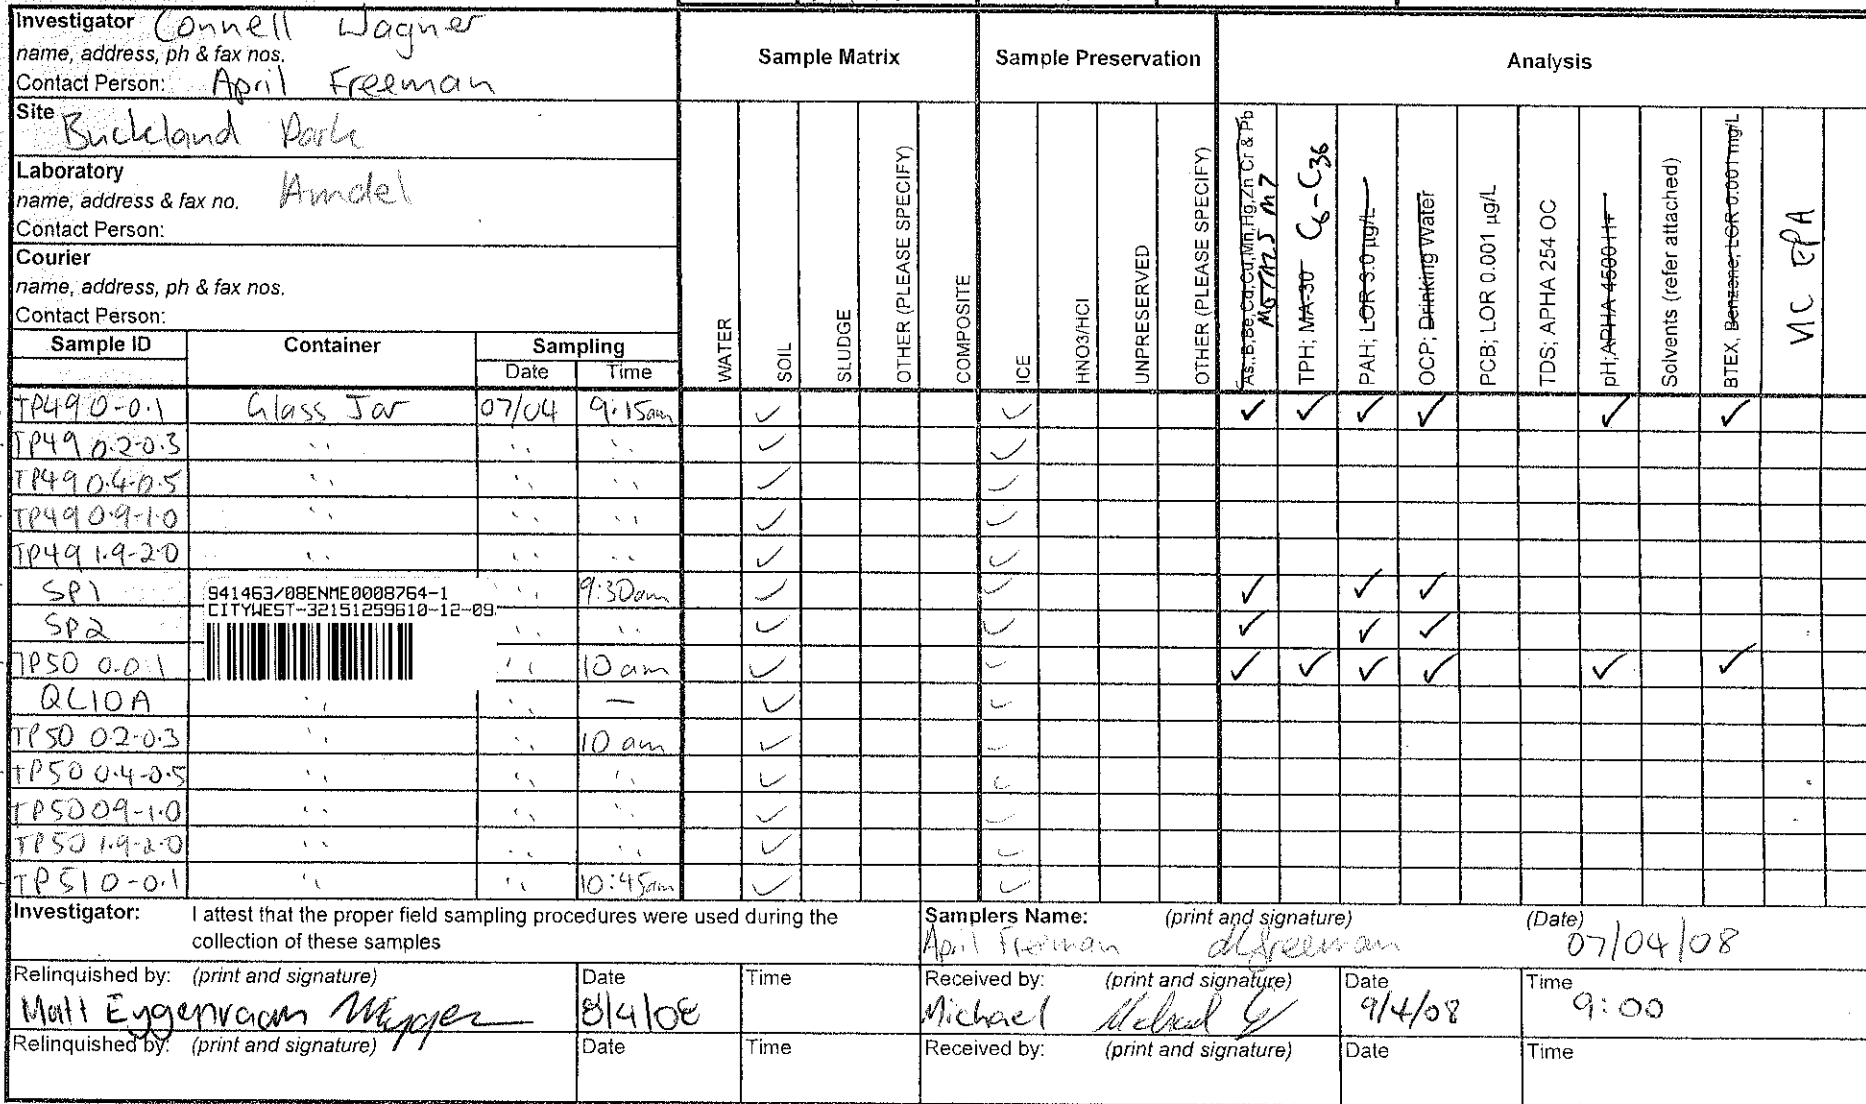 Investigator Connell Wagner
name, address, ph & fax nos.
Contact Person: April Freeman
Site Buckland Park
Laboratory
name, address & fax no. Amdel
Contact Person:
Courier
name, address, ph & fax nos.
Contact Person:
Sample Matrix Sample Preservation Analysis
WATER
SOIL
SLUDGE
OTHER (PLEASE SPECIFY)
COMPOSITE
ICE
HNO3/HCl
UNPRESERVED
OTHER (PLEASE SPECIFY)
As,B,Be,Cd,Cu,Mn,Hg,Zn Cr & Pb
METALS M7
TPH; MA-30 C6-C36
PAH; LOR 3.0 µg/L
OCP; Drinking Water
PCB; LOR 0.001 µg/L
TDS; APHA 254 OC
pH; APHA 4500 H+
Solvents (refer attached)
BTEX, Benzene, LOR 0.001 mg/L
VIC EPA
Sample ID Container Sampling
Date Time
TP49 0-0.1 Glass Jar 07/04 9:15am ✓ ✓ ✓ ✓ ✓ ✓ ✓ ✓
TP49 0.2-0.3 " " " ✓ ✓
TP49 0.4-0.5 " " " ✓ ✓
TP49 0.9-1.0 " " " ✓ ✓
TP49 1.9-2.0 " " " ✓ ✓
SP1 " 9:30am ✓ ✓ ✓ ✓ ✓
941463/08ENME0008764-1
CITYWEST-32151259610-12-09
SP2 " " ✓ ✓ ✓ ✓ ✓
TP50 0-0.1 " 10am ✓ ✓ ✓ ✓ ✓ ✓ ✓ ✓
QC10A " " — ✓ ✓
TP50 0.2-0.3 " " 10am ✓ ✓
TP50 0.4-0.5 " " " ✓ ✓
TP50 0.9-1.0 " " " ✓ ✓
TP50 1.9-2.0 " " " ✓ ✓
TP51 0-0.1 " " 10:45am ✓ ✓
Investigator: I attest that the proper field sampling procedures were used during the
collection of these samples
Samplers Name: (print and signature) (Date)
April Freeman afreeman 07/04/08
Relinquished by: (print and signature) Date Time Received by: (print and signature) Date Time
Matt Eygenraam 8/4/08 Michael 9/4/08 9:00
Relinquished by: (print and signature) Date Time Received by: (print and signature) Date Time